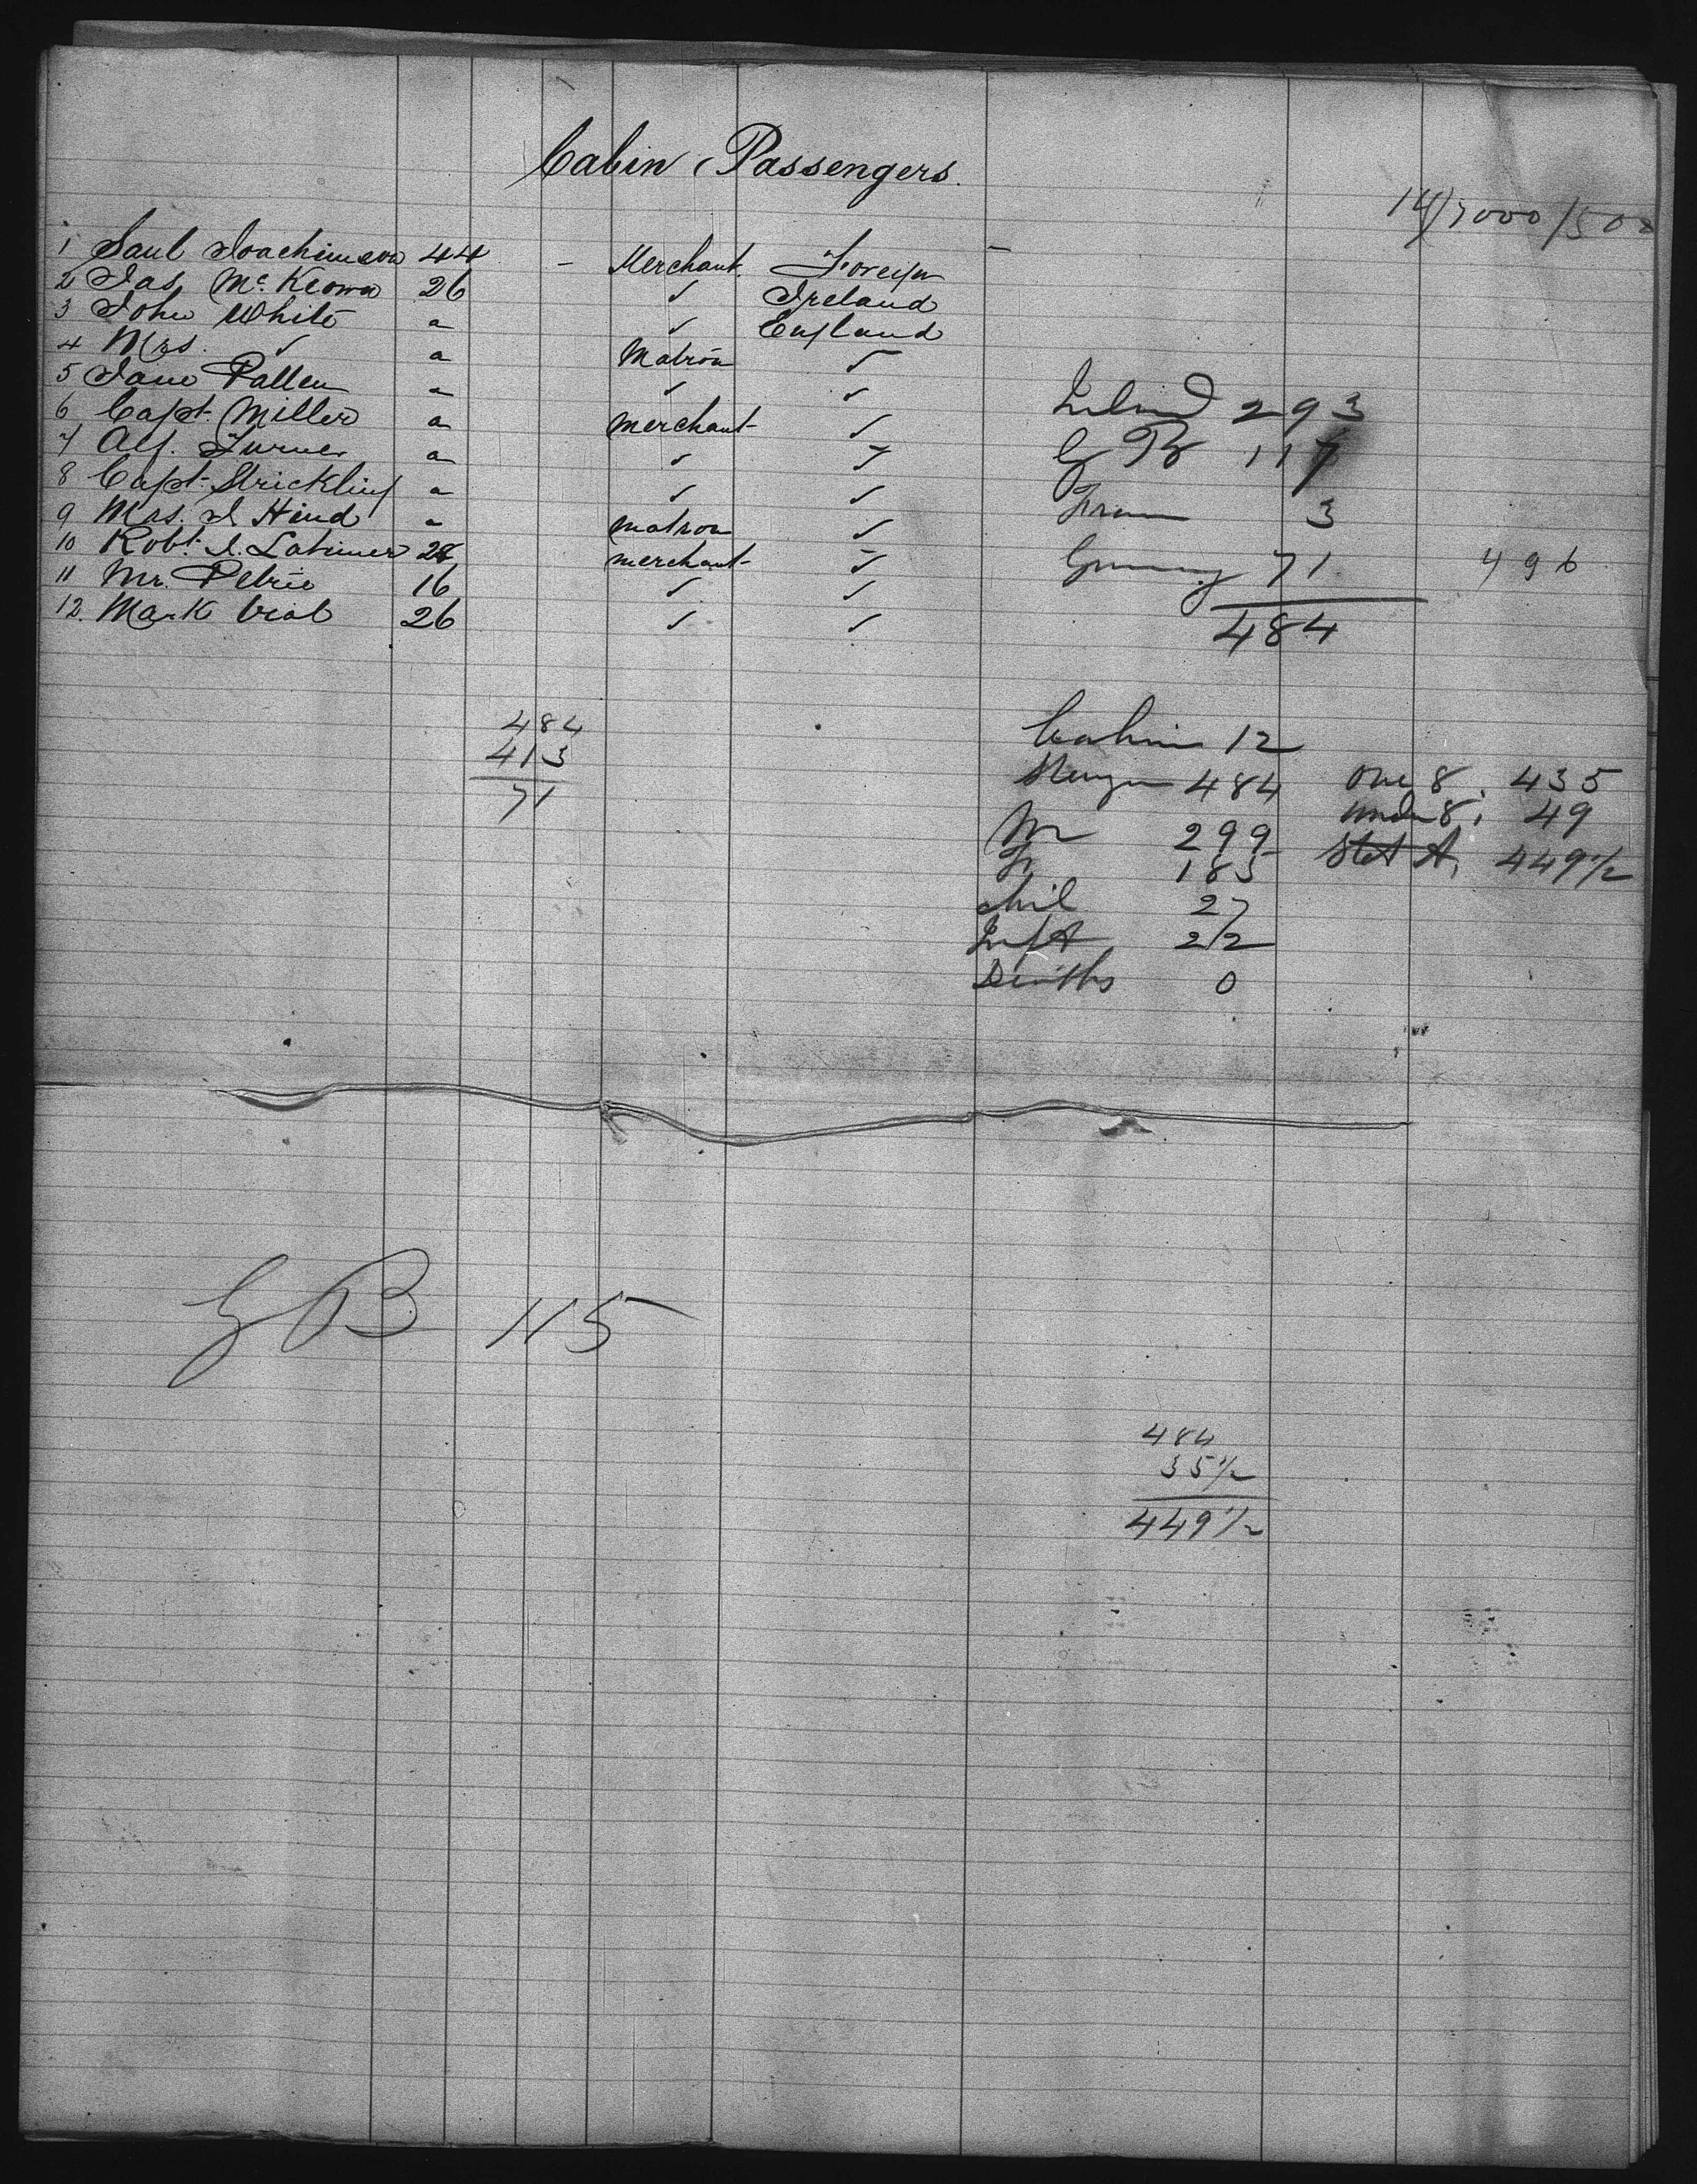 Cabin Passengers.
14/7000/500
1 Saul Joachimson 44 - Merchant. Foreign -
2 Jas Mc. Keown 26 ✓ Ireland
3 John White a ✓ England
4 Mrs. ✓ a Matron ✓
5 Jane Pallen a ✓ ✓
6 Capt. Miller a merchant ✓
7 Alf. Turner a ✓ ✓
8 Capt. Strickling a ✓ ✓
9 Mrs. J Hind a matron ✓
10 Robt. J. Latimer 28 merchant ✓
11 Mr. Petrie 16 ✓ ✓
12. Mark Vial 26 ✓ ✓
Ireland 293
G B 117
Fran 3
Germany 71 496
484
484
413
71
Cabin 12
Steerage 484 over 8. 435
under 8, 49
M 299 Stat A, 449 1/2
F 185
chil 27
Inft 22
Deaths 0
G B 115
484
35 1/2
449 1/2